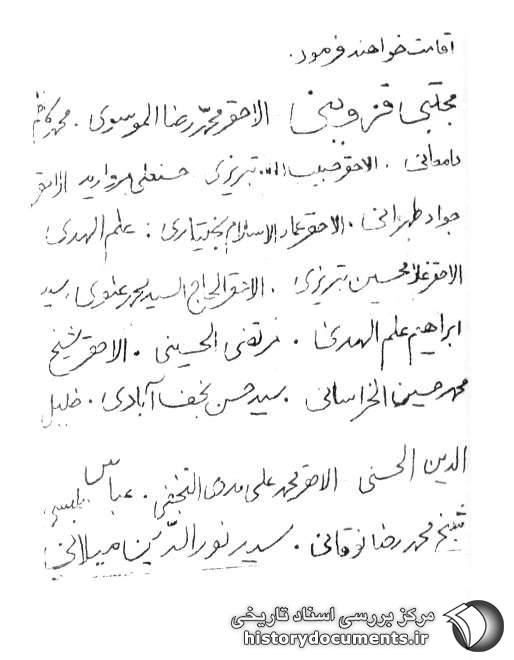 اقامت خواهند فرمود.
مجتبی قزوینی الاحقر محمد رضا الموسوی . محمد کاظم
دامغانی . الاحقر حبیب الله تبریزی حسنعلی مروارید الاحقر
جواد طهرانی . الاحقر عماد الاسلام بختیاری . علم الهدی
الاحقر غلامحسین تبریزی . الاحقر الحاج السید محمد علوی . سید
ابراهیم علم الهدی . مرتضی الحسینی . الاحقر شیخ
محمد حسین الخراسانی . سید حسن نجف آبادی . خلیل
الدین الحسنی الاحقر محمد علی النجفی . عباس
شیخ محمد رضا نوقانی . سید نورالدین میلانی
مرکز بررسی اسناد تاریخی
historydocuments.ir